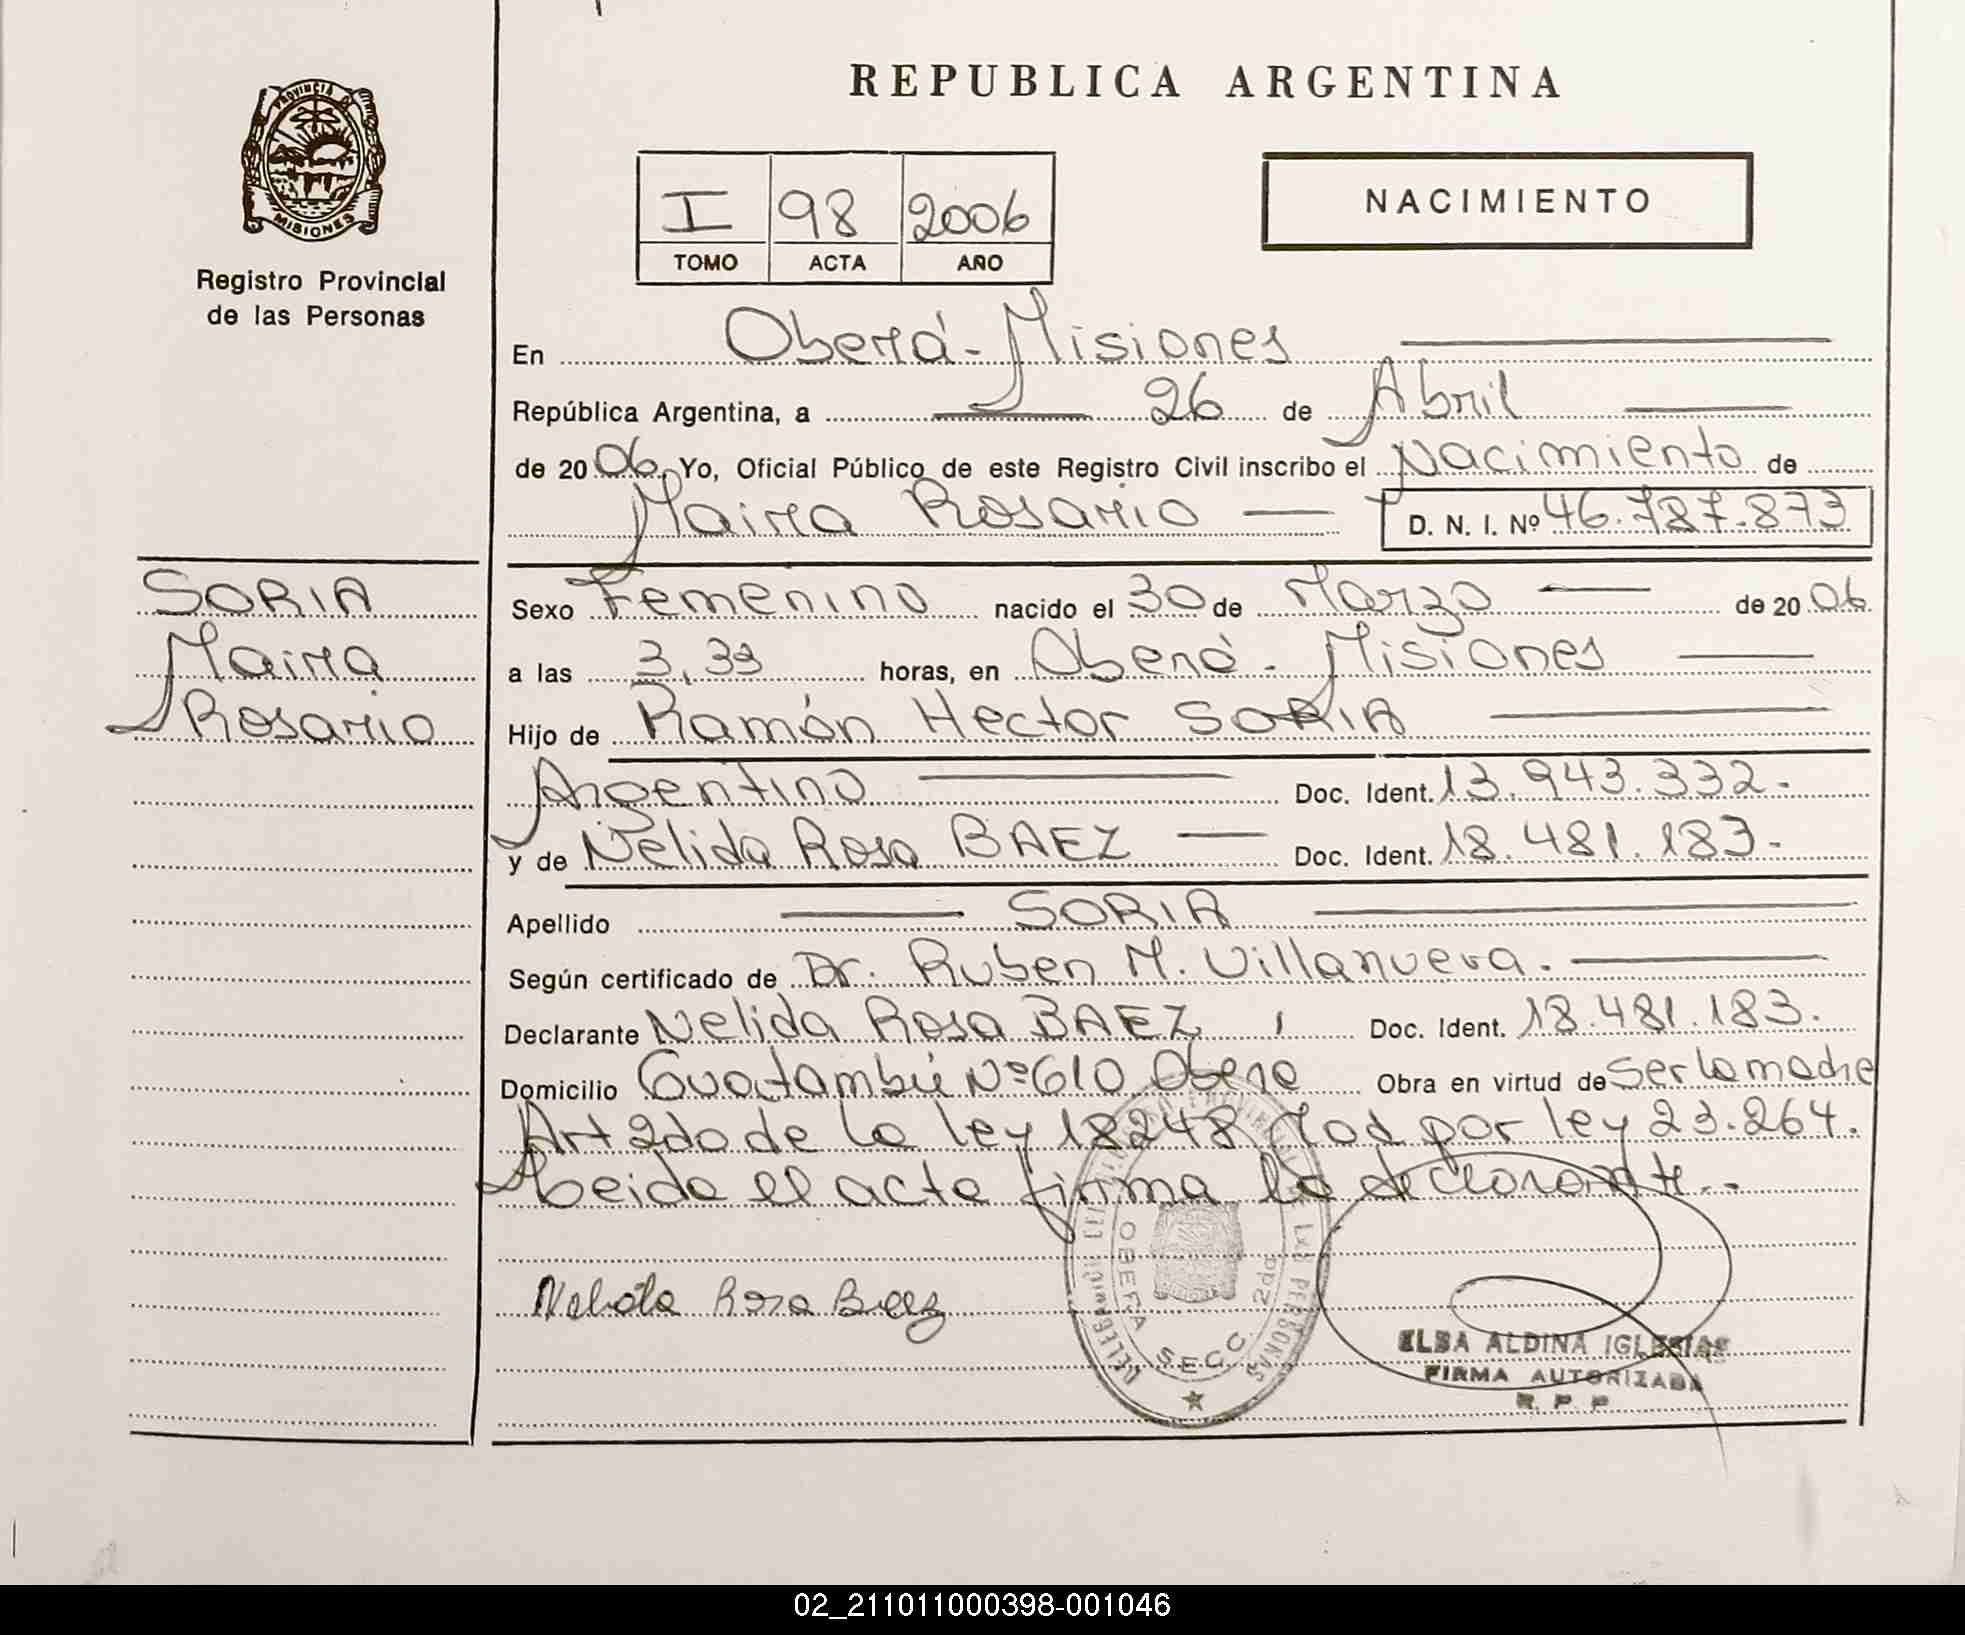 REPUBLICA ARGENTINA
PROVINCIA DE
MISIONES
Registro Provincial
de las Personas
I 98 2006
TOMO ACTA AÑO
NACIMIENTO
En Oberá - Misiones
República Argentina, a 26 de Abril
de 2006. Yo, Oficial Público de este Registro Civil inscribo el Nacimiento de
Maira Rosario D. N. I. Nº 46.787.873
SORIA
Maira
Rosario
Sexo Femenino nacido el 30 de Marzo de 2006
a las 3,33 horas, en Oberá - Misiones
Hijo de Ramón Hector SORIA
Argentino Doc. Ident. 13.943.332.-
y de Nelida Rosa BAEZ Doc. Ident. 18.481.183.-
Apellido SORIA
Según certificado de Dr. Ruben M. Villanueva.
Declarante Nelida Rosa BAEZ, Doc. Ident. 18.481.183.
Domicilio Guatambú Nº 610 Obera Obra en virtud de ser la madre
Art 2do de la ley 18248 Mod por ley 23.264.
Leida el acta firma la declarante.-
Nelida Rosa Baez
OBERA
SEC. 2da
ELBA ALDINA IGLESIAS
FIRMA AUTORIZADA
R. P. P
02_211011000398-001046